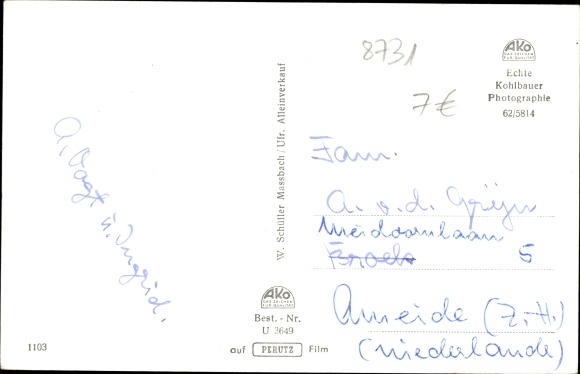 8731
7€
AKO
DAS ZEICHEN
FÜR QUALITÄT
Echte
Kohlbauer
Photographie
62/5814
A. Vogt
u. Ingrid.
W. Schüller Massbach / Ufr. Alleinverkauf
Fam.
A. v. d.
Meidoornlaan
5
Ameide (Z.-H.)
(Niederlande)
AKO
DAS ZEICHEN
FÜR QUALITÄT
Best. - Nr.
U 3649
1103
auf PERUTZ Film